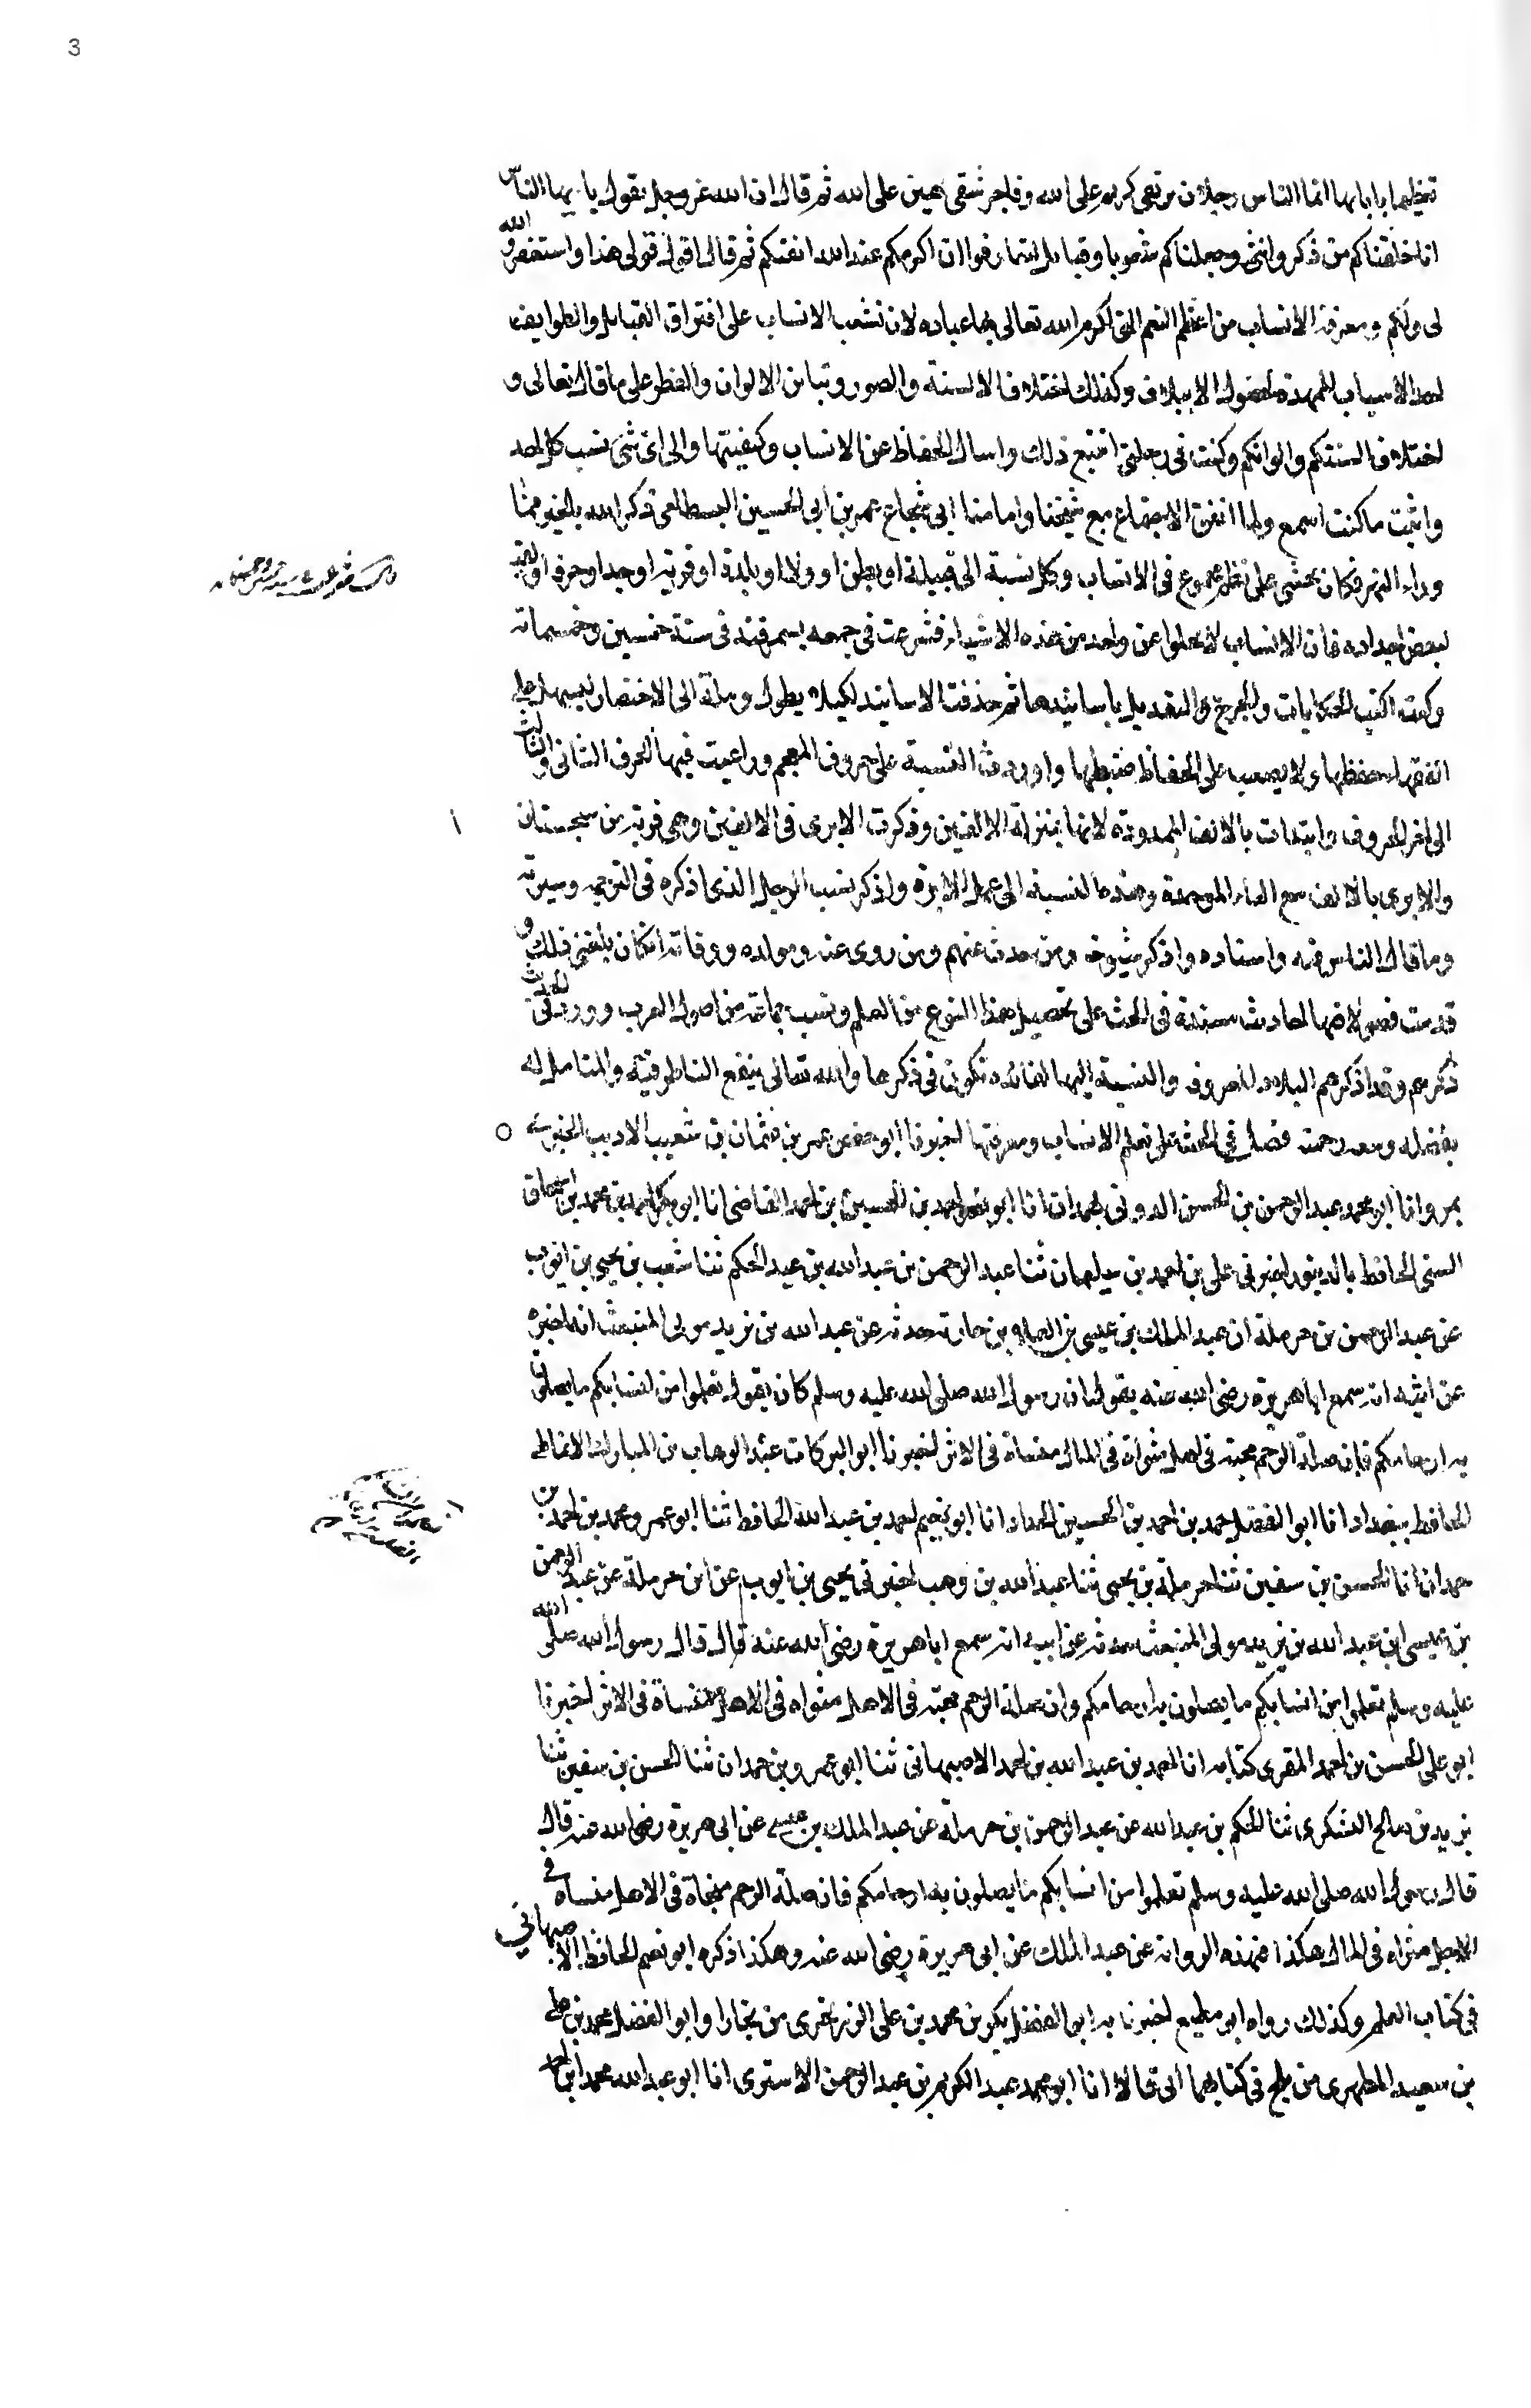 3
تعظمها بابايها انما الناس رجلان مومن تقى كريم على الله وفاجر شقى هين على الله ثم قال ان الله عز وجل يقول يا يها الناس
انا خلقناكم من ذكر وانثى وجعلناكم شعوبا وقبايل لتعارفوا ان اكرمكم عند الله اتقيكم ثم قال اقول قولى هذا واستغفر الله
لى ولكم ومعرفة الانساب من اعظم النعم التى اكرم الله تعالى بها عباده لان تشعب الانساب على افتراق القبايل والطوايف
احد الاسباب الممهدة لحصول الايتلاف وكذلك اختلاف الالسنة والصور وتباين الالوان والفطر على ما قال تعالى و
اختلاف السنتكم والوانكم وكنت فى رحلتى اتتبع ذلك واسال الحفاظ عن الانساب وكيفيتها والى اى شى نسب كل احد
واثبت ما كنت اسمع ولما اتفق الاجتماع مع شيخنا وامامنا ابى شجاع عمر بن ابى الحسين البسطامى ذكره الله بالخير مما
وراء النهر فكان يحثنى على نظم مجموع فى الانساب وكل نسبة الى قبيلة او بطن او ولاء او بلدة او قرية او جد او حرفة او لقب
لبعض اجداده فان الانساب لا تخلوا عن واحد من هذه الاشياء فشرعت فى جمعه بسمرقند فى سنة خمسين وخمسماية
وكنت اكتب الحكايات والجرح والتعديل باسانيدها ثم حذفت الاسانيد لكيلا يطول وملت الى الاختصار ليسهل على
الفقها حفظها ولا يصعب على الحفاظ ضبطها واوردت النسبة على حروف المعجم وراعيت فيها الحرف الثانى والثالث
الى اخر الحروف وابتدات بالالف الممدودة لانها بمنزلة الالفين وذكرت الابرى فى الالفين وهى قرية من سجستان
والابرى بالالف مع الباء الموحدة وهذه النسبة الى عمل الابرة واذكر نسب الرجل الذى اذكره فى الترجمة وسيرته
وما قال الناس فيه واسناده واذكر شيوخه ومن حدث عنهم ومن روى عنه ومولده ووفاته ان كان بلغنى ذلك و
قدمت فصولا فيها احاديث مسندة فى الحث على تحصيل هذا النوع من العلم ونسب جماعة من اصول العرب وورد فى الحديث
ذكرهم وقد اذكر هم البلاد المعروف والنسبة اليها لفائدة تكون فى ذكرها والله تعالى ينفع الناظر فيه والمتامل له
بفضله وسعة رحمته فصل فى الحث على تعلم الانساب ومعرفتها اخبرنا ابو حفص عمر بن عثمان بن شعيب الاديب
بمرو انا ابو محمد عبد الرحمن بن الحسن الدونى بهمدان انا ابو نصر احمد بن الحسين بن احمد القاضى انا ابو بكر احمد بن محمد بن اسحاق
السنى الحافظ بالدينور اخبرنى على بن احمد بن سليمان ثنا عبد الرحمن بن عبد الله بن عبد الحكم ثنا شعيب بن يحيى بن ايوب
عن عبد الرحمن بن حرملة ان عبد الملك بن عيسى بن العلاء بن جارية حدثه عن عبد الله بن يزيد مولى المنبعث انه اخبره
عن ابيه انه سمع ابا هريرة رضى الله عنه يقول ان رسول الله صلى الله عليه وسلم كان يقول تعلموا من انسابكم ما يصلون
به ارحامكم فان صلة الرحم محبة فى اهل مثراة فى المال منساة فى الاثر اخبرنا ابو البركات عبد الوهاب بن المبارك الانماطى
الحافظ ببغداد انا ابو الفضل حمد بن احمد بن الحسين الحداد انا ابو نعيم احمد بن عبد الله الحافظ ثنا ابو عمرو محمد بن احمد بن
حمدان انا الحسن بن سفين ثنا حرملة بن يحيى ثنا عبد الله بن وهب اخبرنى يحيى بن ايوب عن ابن حرملة عن عبد الرحمن
بن عيسى ابن عبد الله بن يزيد مولى المنبعث حدثه عن ابيه انه سمع ابا هريرة رضى الله عنه قال قال رسول الله صلى الله
عليه وسلم تعلموا من انسابكم ما يصلون به ارحامكم وان صلة الرحم محبة فى الاهل مثراه فى الاهل منساة فى الاثر اخبرنا
ابو على الحسن بن احمد المقرى كتابه انا احمد بن عبد الله بن احمد الاصبهانى ثنا ابو عمرو بن حمدان ثنا الحسن بن سفين ثنا
يزيد بن صالح اليشكرى ثنا الحكم بن عبد الله عن عبد الرحمن بن حرملة عن عبد الملك بن عيسى عن ابى هريرة رضى الله عنه قال
قال رسول الله صلى الله عليه وسلم تعلموا من انسابكم ما يصلون به ارحامكم فان صلة الرحم منجاة فى الاهل منساه فى
الاجل مثراه فى المال هكذا فى هذه الرواية عن عبد الملك عن ابى هريرة رضى الله عنه وهكذا ذكره ابو نعيم الحافظ الاصبهانى
فى كتاب العلم وكذلك رواه ابو مطيع اخبرنا به ابو الفضل بكر بن محمد بن على الزرنجرى من بخارا وابو الفضل محمد بن على
بن سعيد المطهرى من بلخ فى كتابهما الى قالا انا ابو محمد عبد الكريم بن عبد الرحمن الاسترى انا ابو عبد الله محمد ابن احمد